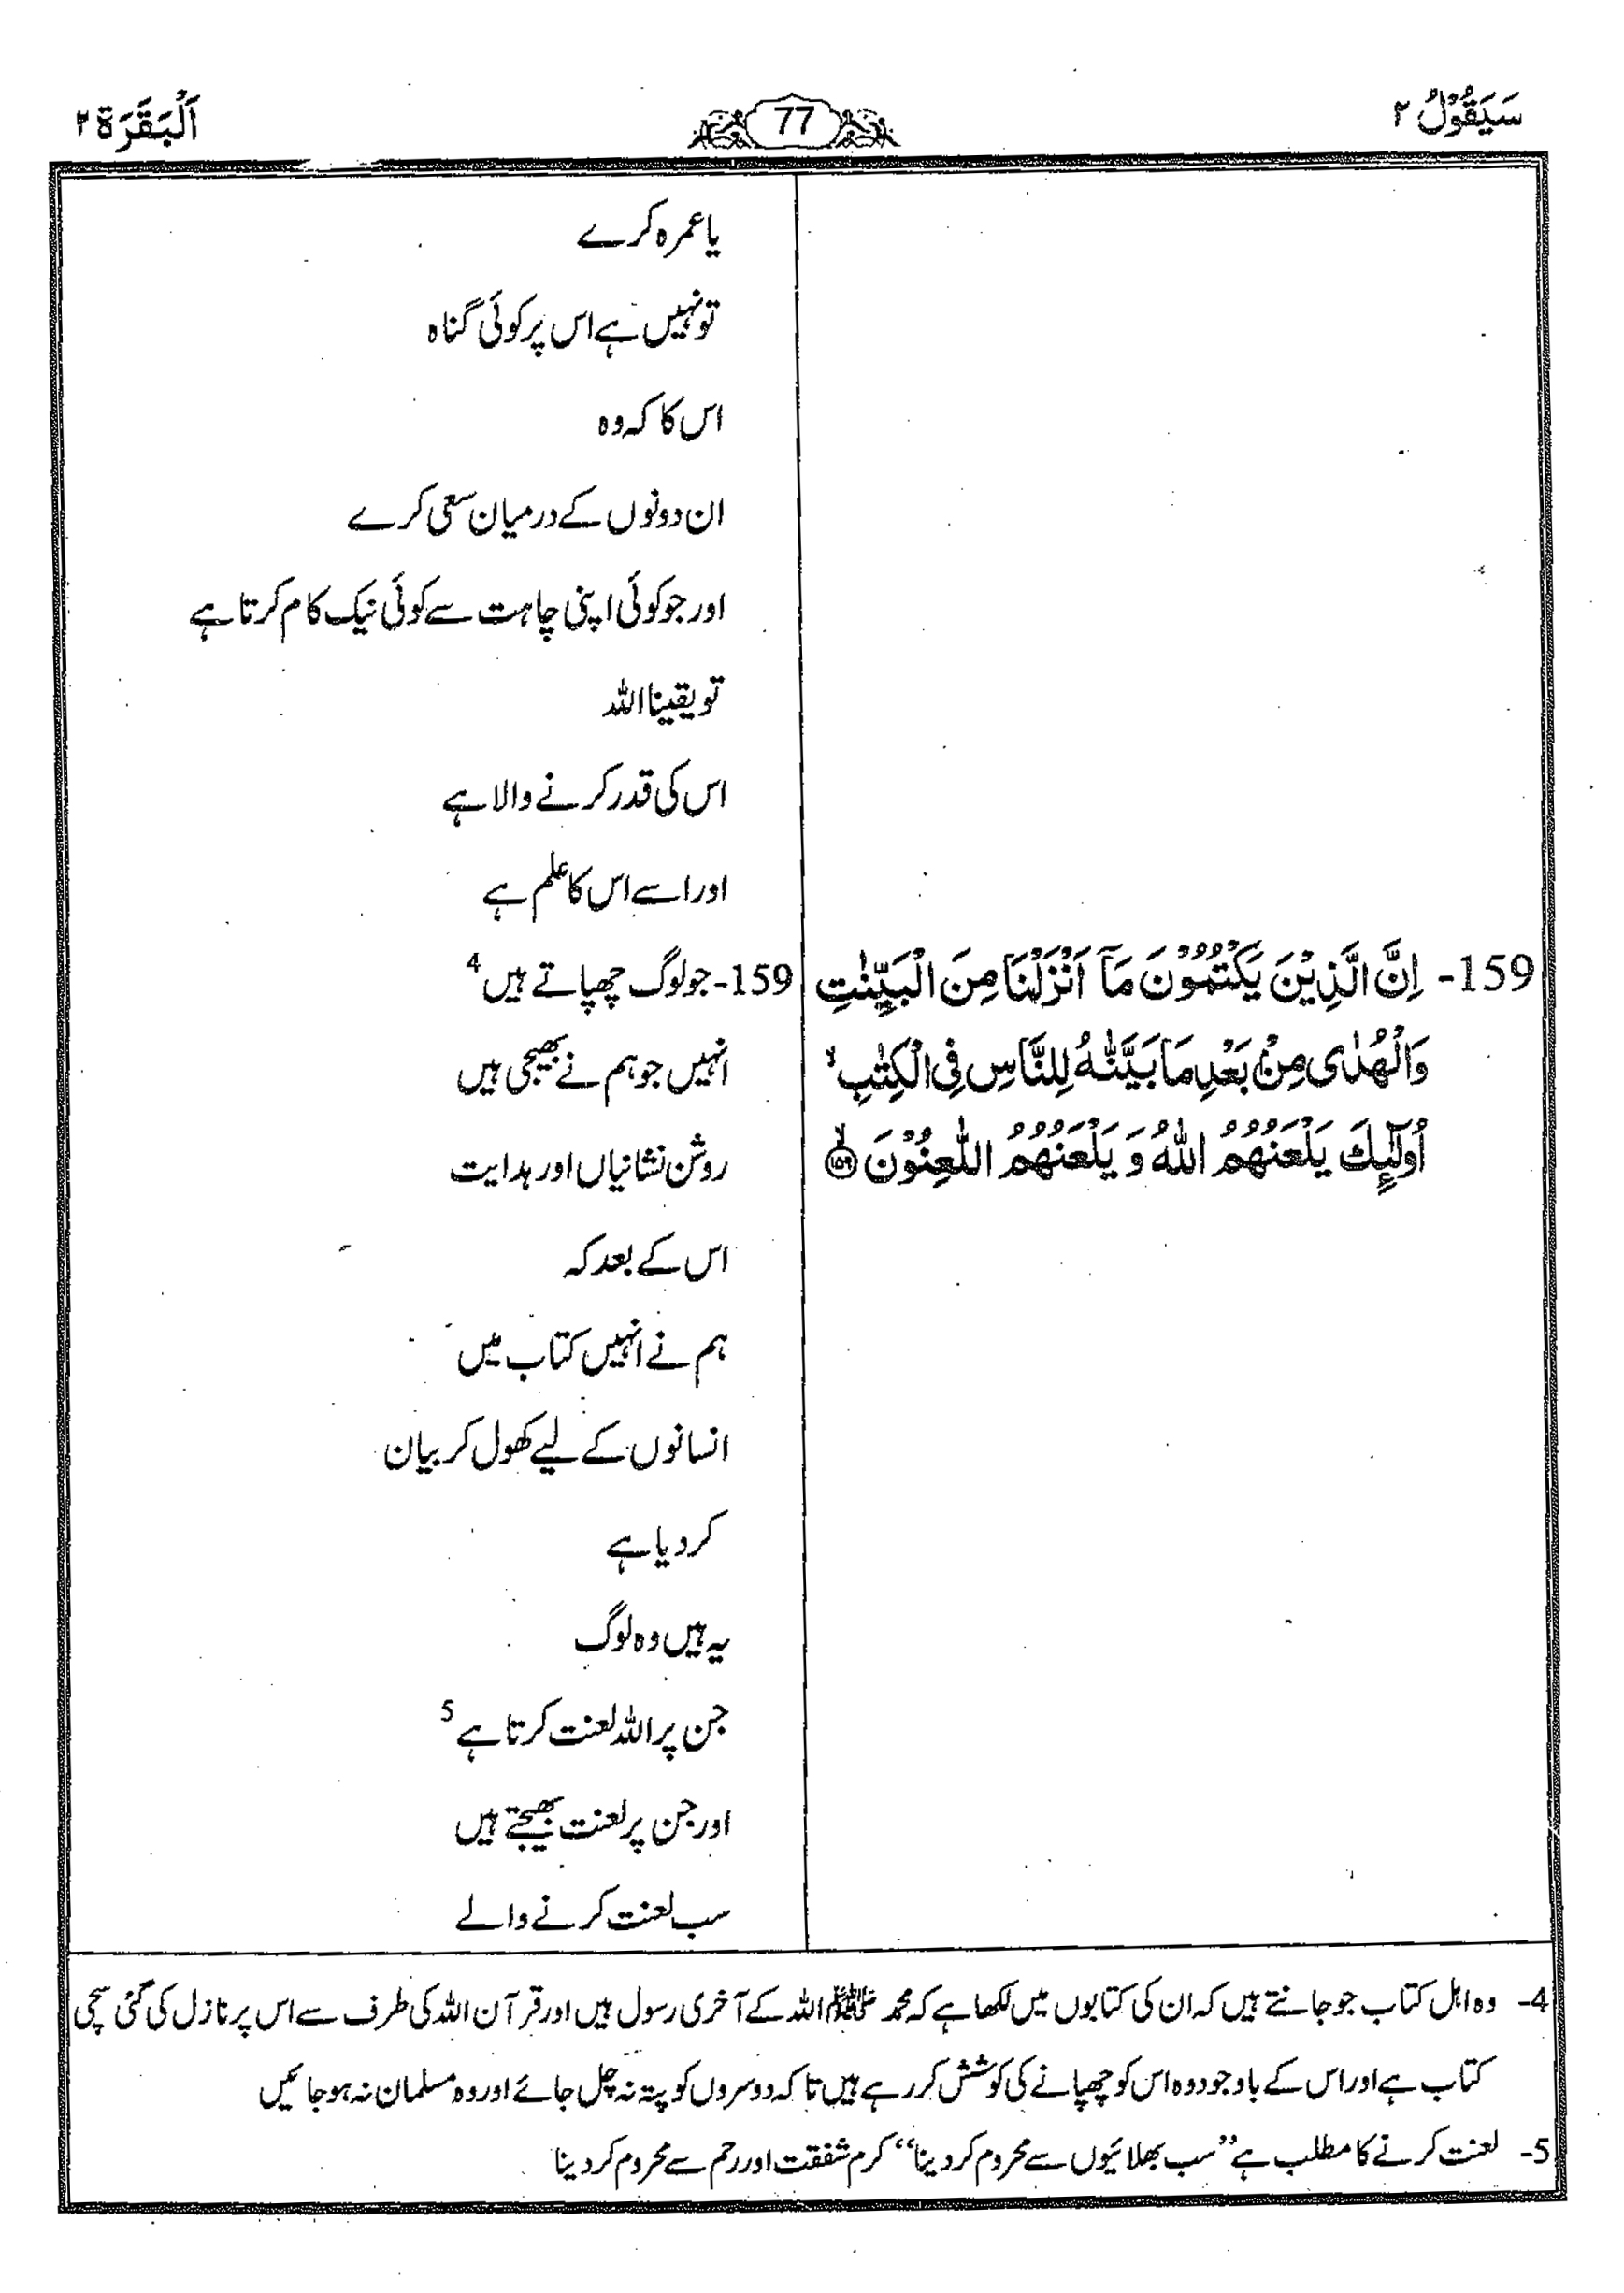 سَيَقُوْلُ ٢
77
اَلْبَقَرَة ٢
یا عمرہ کرے
تو نہیں ہے اس پر کوئی گناہ
اس کا کہ وہ
ان دونوں کے درمیان سعی کرے
اور جو کوئی اپنی چاہت سے کوئی نیک کام کرتا ہے
تو یقینا اللہ
اس کی قدر کرنے والا ہے
اور اسے اس کا علم ہے
159- اِنَّ الَّذِيْنَ يَكْتُمُوْنَ مَآ اَنْزَلْنَا مِنَ الْبَيِّنٰتِ
وَالْهُدٰى مِنْۢ بَعْدِ مَا بَيَّنّٰهُ لِلنَّاسِ فِى الْكِتٰبِ ۙ
اُولٰٓئِكَ يَلْعَنُهُمُ اللّٰهُ وَ يَلْعَنُهُمُ اللّٰعِنُوْنَ ۙ﴿١٥٩﴾
159- جو لوگ چھپاتے ہیں 4
انہیں جو ہم نے بھیجی ہیں
روشن نشانیاں اور ہدایت
اس کے بعد کہ
ہم نے انہیں کتاب میں
انسانوں کے لیے کھول کر بیان
کر دیا ہے
یہ ہیں وہ لوگ
جن پر اللہ لعنت کرتا ہے 5
اور جن پر لعنت بھیجتے ہیں
سب لعنت کرنے والے
4- وہ اہل کتاب جو جانتے ہیں کہ ان کی کتابوں میں لکھا ہے کہ محمد ﷺ اللہ کے آخری رسول ہیں اور قرآن اللہ کی طرف سے اس پر نازل کی گئی سچی
کتاب ہے اور اس کے باوجود وہ اس کو چھپانے کی کوشش کر رہے ہیں تا کہ دوسروں کو پتہ نہ چل جائے اور وہ مسلمان نہ ہو جائیں
5- لعنت کرنے کا مطلب ہے ”سب بھلائیوں سے محروم کر دینا“ کرم شفقت اور رحم سے محروم کر دینا